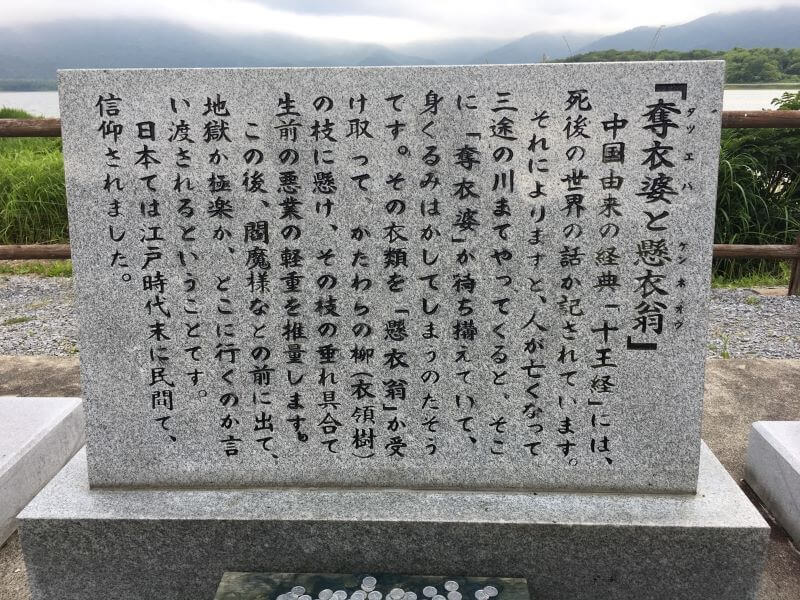 『奪衣婆と懸衣翁』
ダツエバ ケンネオウ
中国由来の経典「十王経」には、
死後の世界の話が記されています。
それによりますと、人が亡くなって
三途の川までやってくると、そこ
に「奪衣婆」が待ち構えていて、
身ぐるみはがしてしまうのだそう
です。その衣類を「懸衣翁」が受
け取って、かたわらの柳(衣領樹)
の枝に懸け、その枝の垂れ具合で
生前の悪業の軽重を推量します。
この後、閻魔様などの前に出て、
地獄か極楽か、どこに行くのか言
い渡されるということです。
日本では江戸時代末に民間で、
信仰されました。